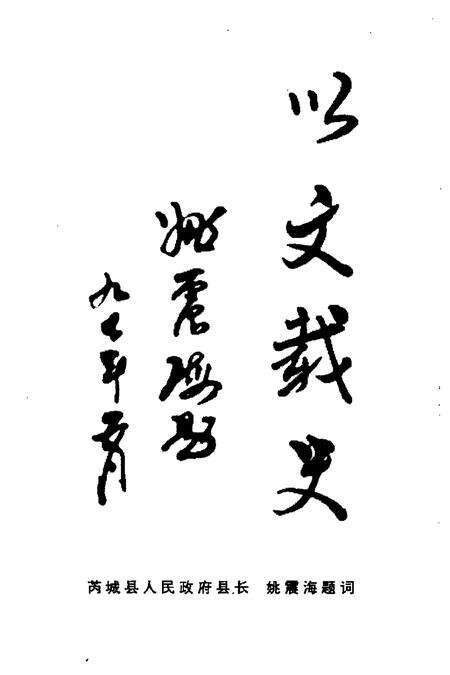 以文载史
姚震海题
九七年五月
芮城县人民政府县长 姚震海题词